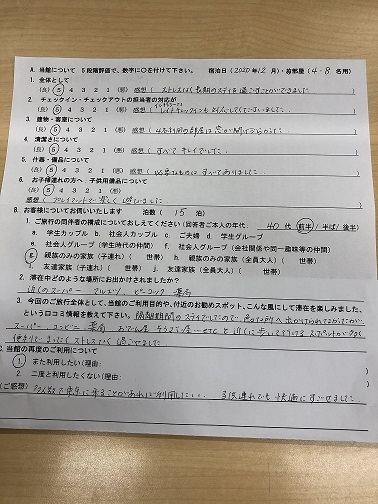 A. 当館について 5段階評価で、数字に〇を付けて下さい。 宿泊日(2020年12月)・お部屋(4・8 名用)
1. 全体として
(良) 5 4 3 2 1 (悪) 感想( ストレスなく長期のステイを過ごすことができました )
2 チェックイン・チェックアウトの担当者の対応が
(良) 5 4 3 2 1 (悪) 感想( レイトチェックインも
3. 建物・客室について
(良) 5 4 3 2 1 (悪) 感想(
4. 清潔さについて
(良) 5 4 3 2 1 (悪) 感想( すべて キレイでした。 )
5. 什器・備品について
(良) 5 4 3 2 1 (悪) 感想( 必要なものはすべてありました )
6. お子様連れの方へ:子供用備品について
(良) 5 4 3 2 1 (悪)
感想( プレイマットで楽しく遊びました )
B お客様についてお伺いいたします 泊数( 15 泊)
1. ご旅行の同伴者の構成についておしえてください(回答者ご本人の年代: 40 代 前半/ 半ば/ 後半)
a. 学生カップル b. 社会人カップル c. ご夫婦 d. 学生グループ
e. 社会人グループ(学生時代の仲間) f. 社会人グループ(会社関係や同一趣味等の仲間)
g 親族のみの家族(子連れ)( 世帯) h. 親族のみの家族(全員大人)( 世帯)
i. 友達家族(子連れ)( 世帯) j. 友達家族(全員大人)( 世帯)
2. 滞在中どのような場所にお出かけされましたか?
近くのスーパー マルエツ、ピーコック 薬局
3. 今回のご旅行全体として、当館のご利用目的や、付近のお勧めスポット、こんな風にして滞在を楽しみました、
という口コミ情報を教えて下さい。 隔離期間のステイでしたので
スーパー コンビニ 薬局
便利で、まったくストレスなく過ごせました
C. 当館の再度のご利用について
1. また利用したい(理由: )
2. 二度と利用したくない(理由: )
(ご感想) 東京に来ることがあれば利用したい。 子供連れでも快適にすごせました